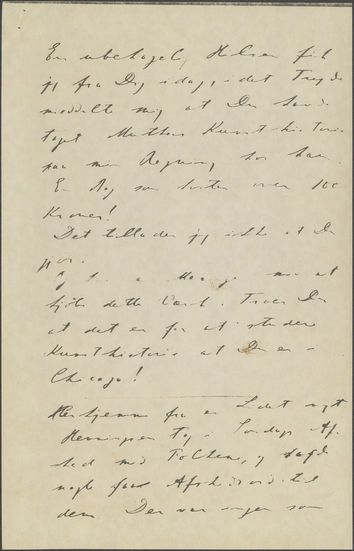 En ubehagelig Hilsen fik
jeg fra Dig idag, i det Tryde
meddelte mig at Du havde
taget Muthers Kunsthistorie
paa min Regning hos ham.
En Bog som koster over 100
Kroner!
Det tillader jeg ikke at Du
gjør.
at
kjøbe dette Værk. Troer Du
at det er for at studere
Kunsthistorie at Du er i
Chicago!
Herhjemme fra er Intet nyt
Henningsen tog i Søndags Af-
sked med Folkene, og sagde
nogle faa Afskedsord til
dem Der var ingen som